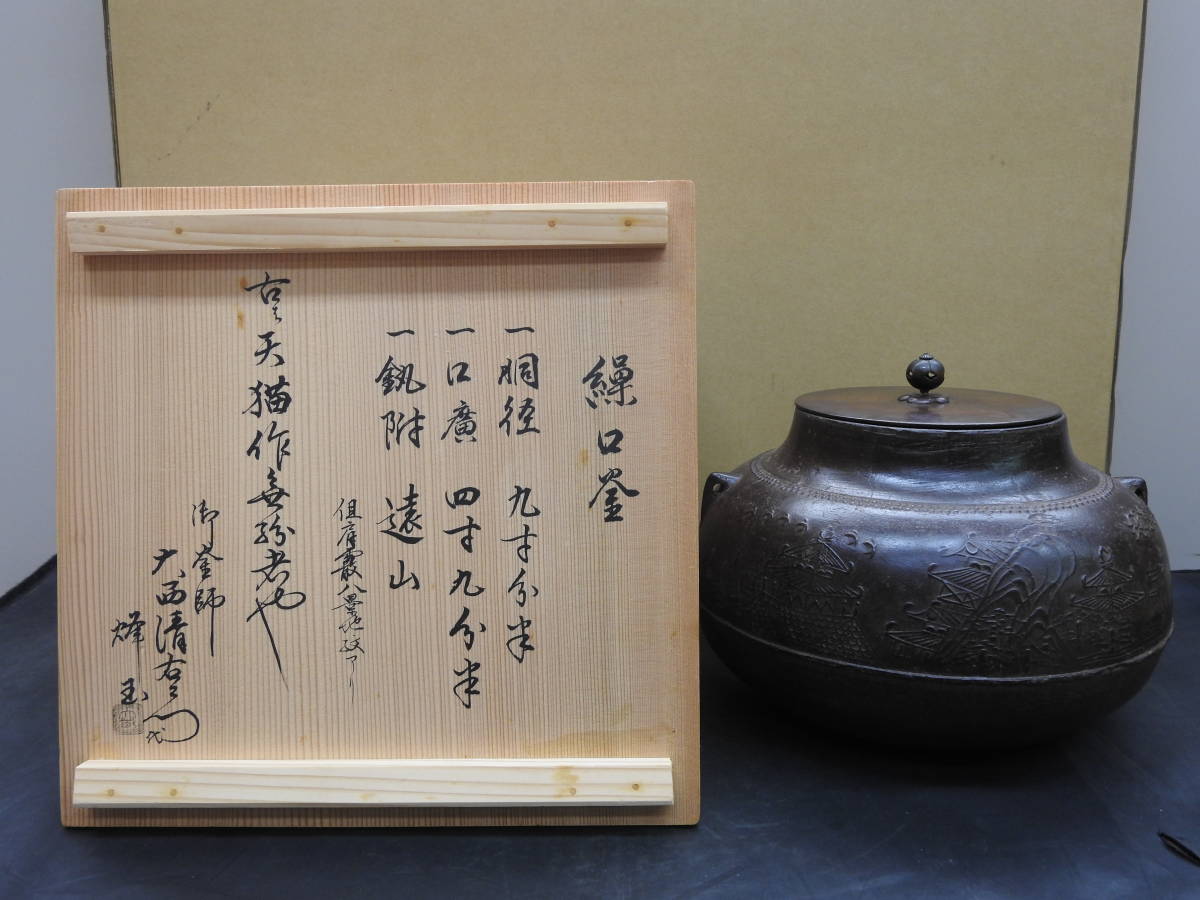 繰口釜
一胴径 九寸分半
一口廣 四寸九分半
一釻附 遠山
但肩霰八景地紋アリ
右天猫作無紛者也
御釜師
大西清右衛門
烽玉